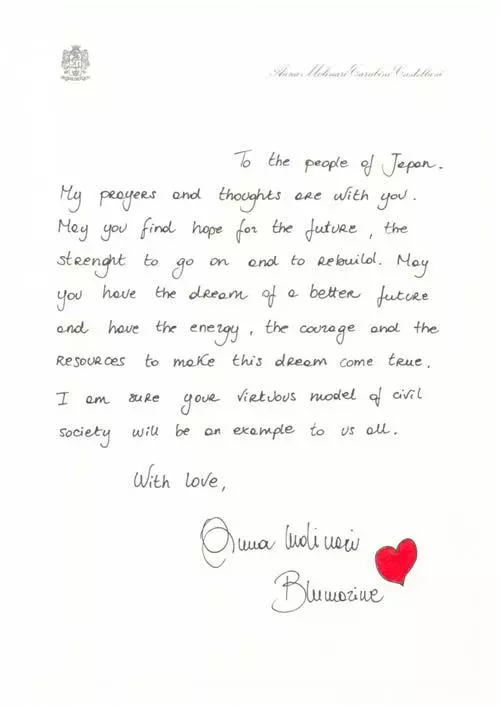 Anna Molinari Tarabini Castellani
To the people of Japan.
My prayers and thoughts are with you.
May you find hope for the future, the
strenght to go on and to rebuild. May
you have the dream of a better future
and have the energy, the courage and the
resources to make this dream come true.
I am sure your virtuous model of civil
society will be an example to us all.
With love,
Anna Molinari
Blumarine